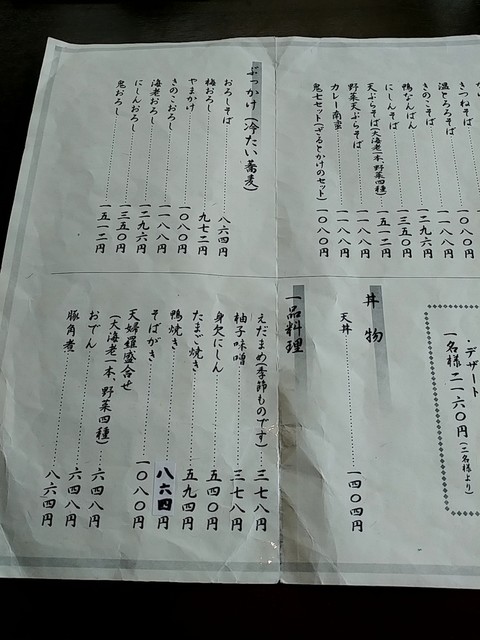 きつねそば
温とろろそば 一〇八〇円
きのこそば 一一八八円
鴨なんばん 一二九六円
にしんそば 一三五〇円
天ぷらそば(大海老一本、野菜四種) 一五一二円
野菜天ぷらそば 一一八八円
カレー南蛮 一一八八円
鬼七セット(ざるとかけのセット) 一〇八〇円
ぶっかけ(冷たい蕎麦)
おろしそば 八六四円
梅おろし 九七二円
やまかけ 一〇八〇円
きのこおろし 一一八八円
海老おろし 一二九六円
にしんおろし 一三五〇円
鬼おろし 一五一二円
・デザート
一名様二一六〇円(二名様より)
丼物
天丼 一四〇四円
一品料理
えだまめ(季節ものです) 三七八円
柚子味噌 三七八円
身欠にしん 五四〇円
たまご焼き 五九四円
鴨焼き 八六四円
そばがき 一〇八〇円
天婦羅盛合せ
(大海老一本、野菜四種) 六四八円
おでん 六四八円
豚角煮 八六四円